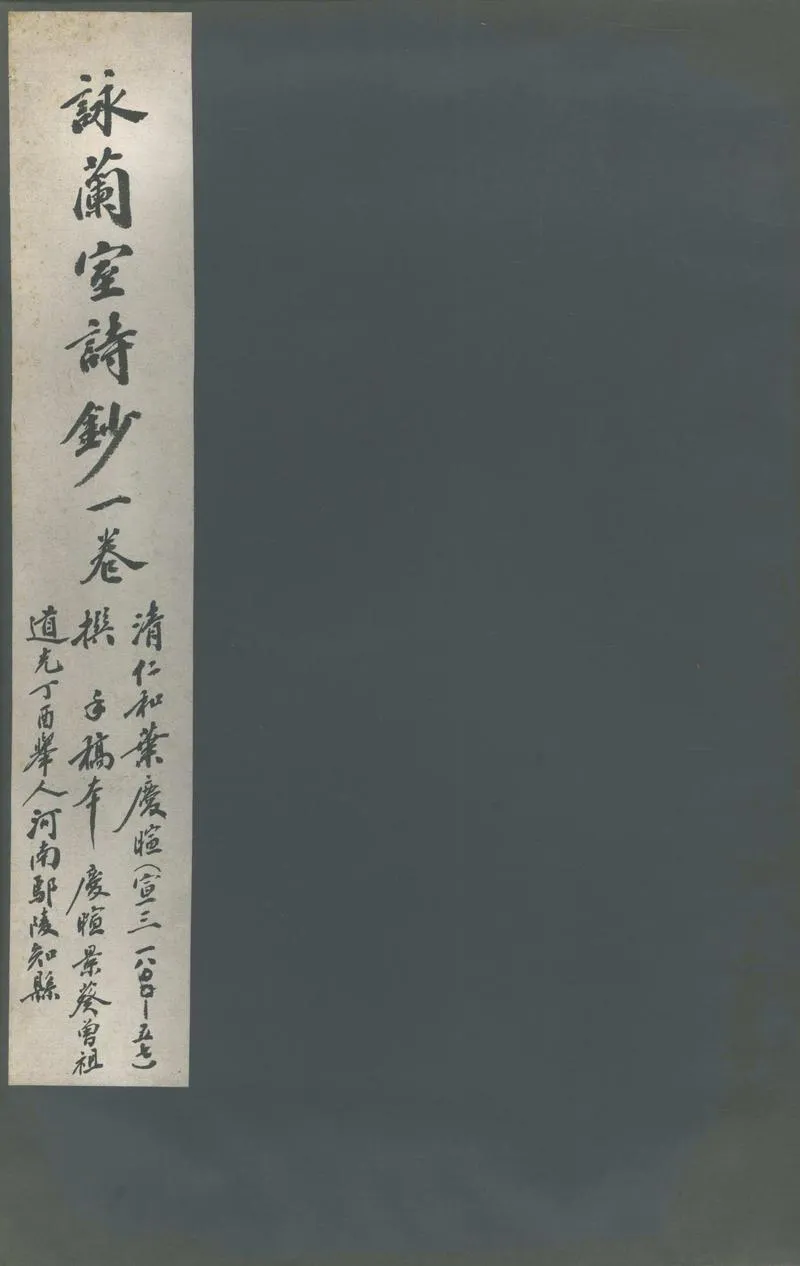 詠蘭室詩鈔一卷
清仁和葉慶暄(宣三 一八〇〇—五七)
撰 手稿本 慶暄景葵曾祖
道光丁酉舉人河南鄢陵知縣